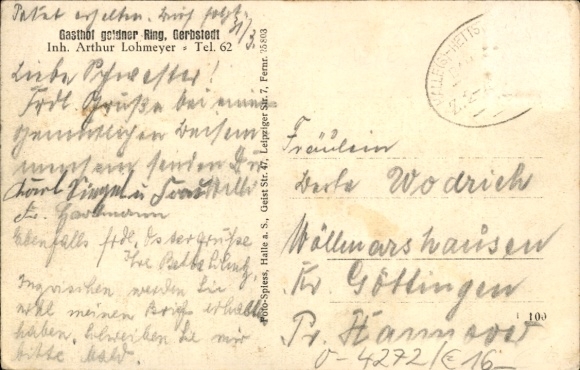 Paket erhalten. Brief folgt.
Gasthof goldner Ring, Gerbstedt
Inh. Arthur Lohmeyer - Tel. 62
Liebe Schwester!
Frdl. Grüße bei einem
gemütlichen Beisam
mensein senden Dir
Karl Siegel u Frau Willi
Fr. Hartmann
Ebenfalls frdl. Ostergrüße
Ihre
Inzwischen werden Sie
wohl meinen Brief erhalten
haben. Schreiben Sie mir
bitte bald.
Foto-Spiess, Halle a. S., Geist Str. 47, Leipziger Str. 7, Fernr. 75803
Fräulein
Berta Wodrich
Wöllmarshausen
Kr. Göttingen
Pr. Hannover
100
0-4272/€16-